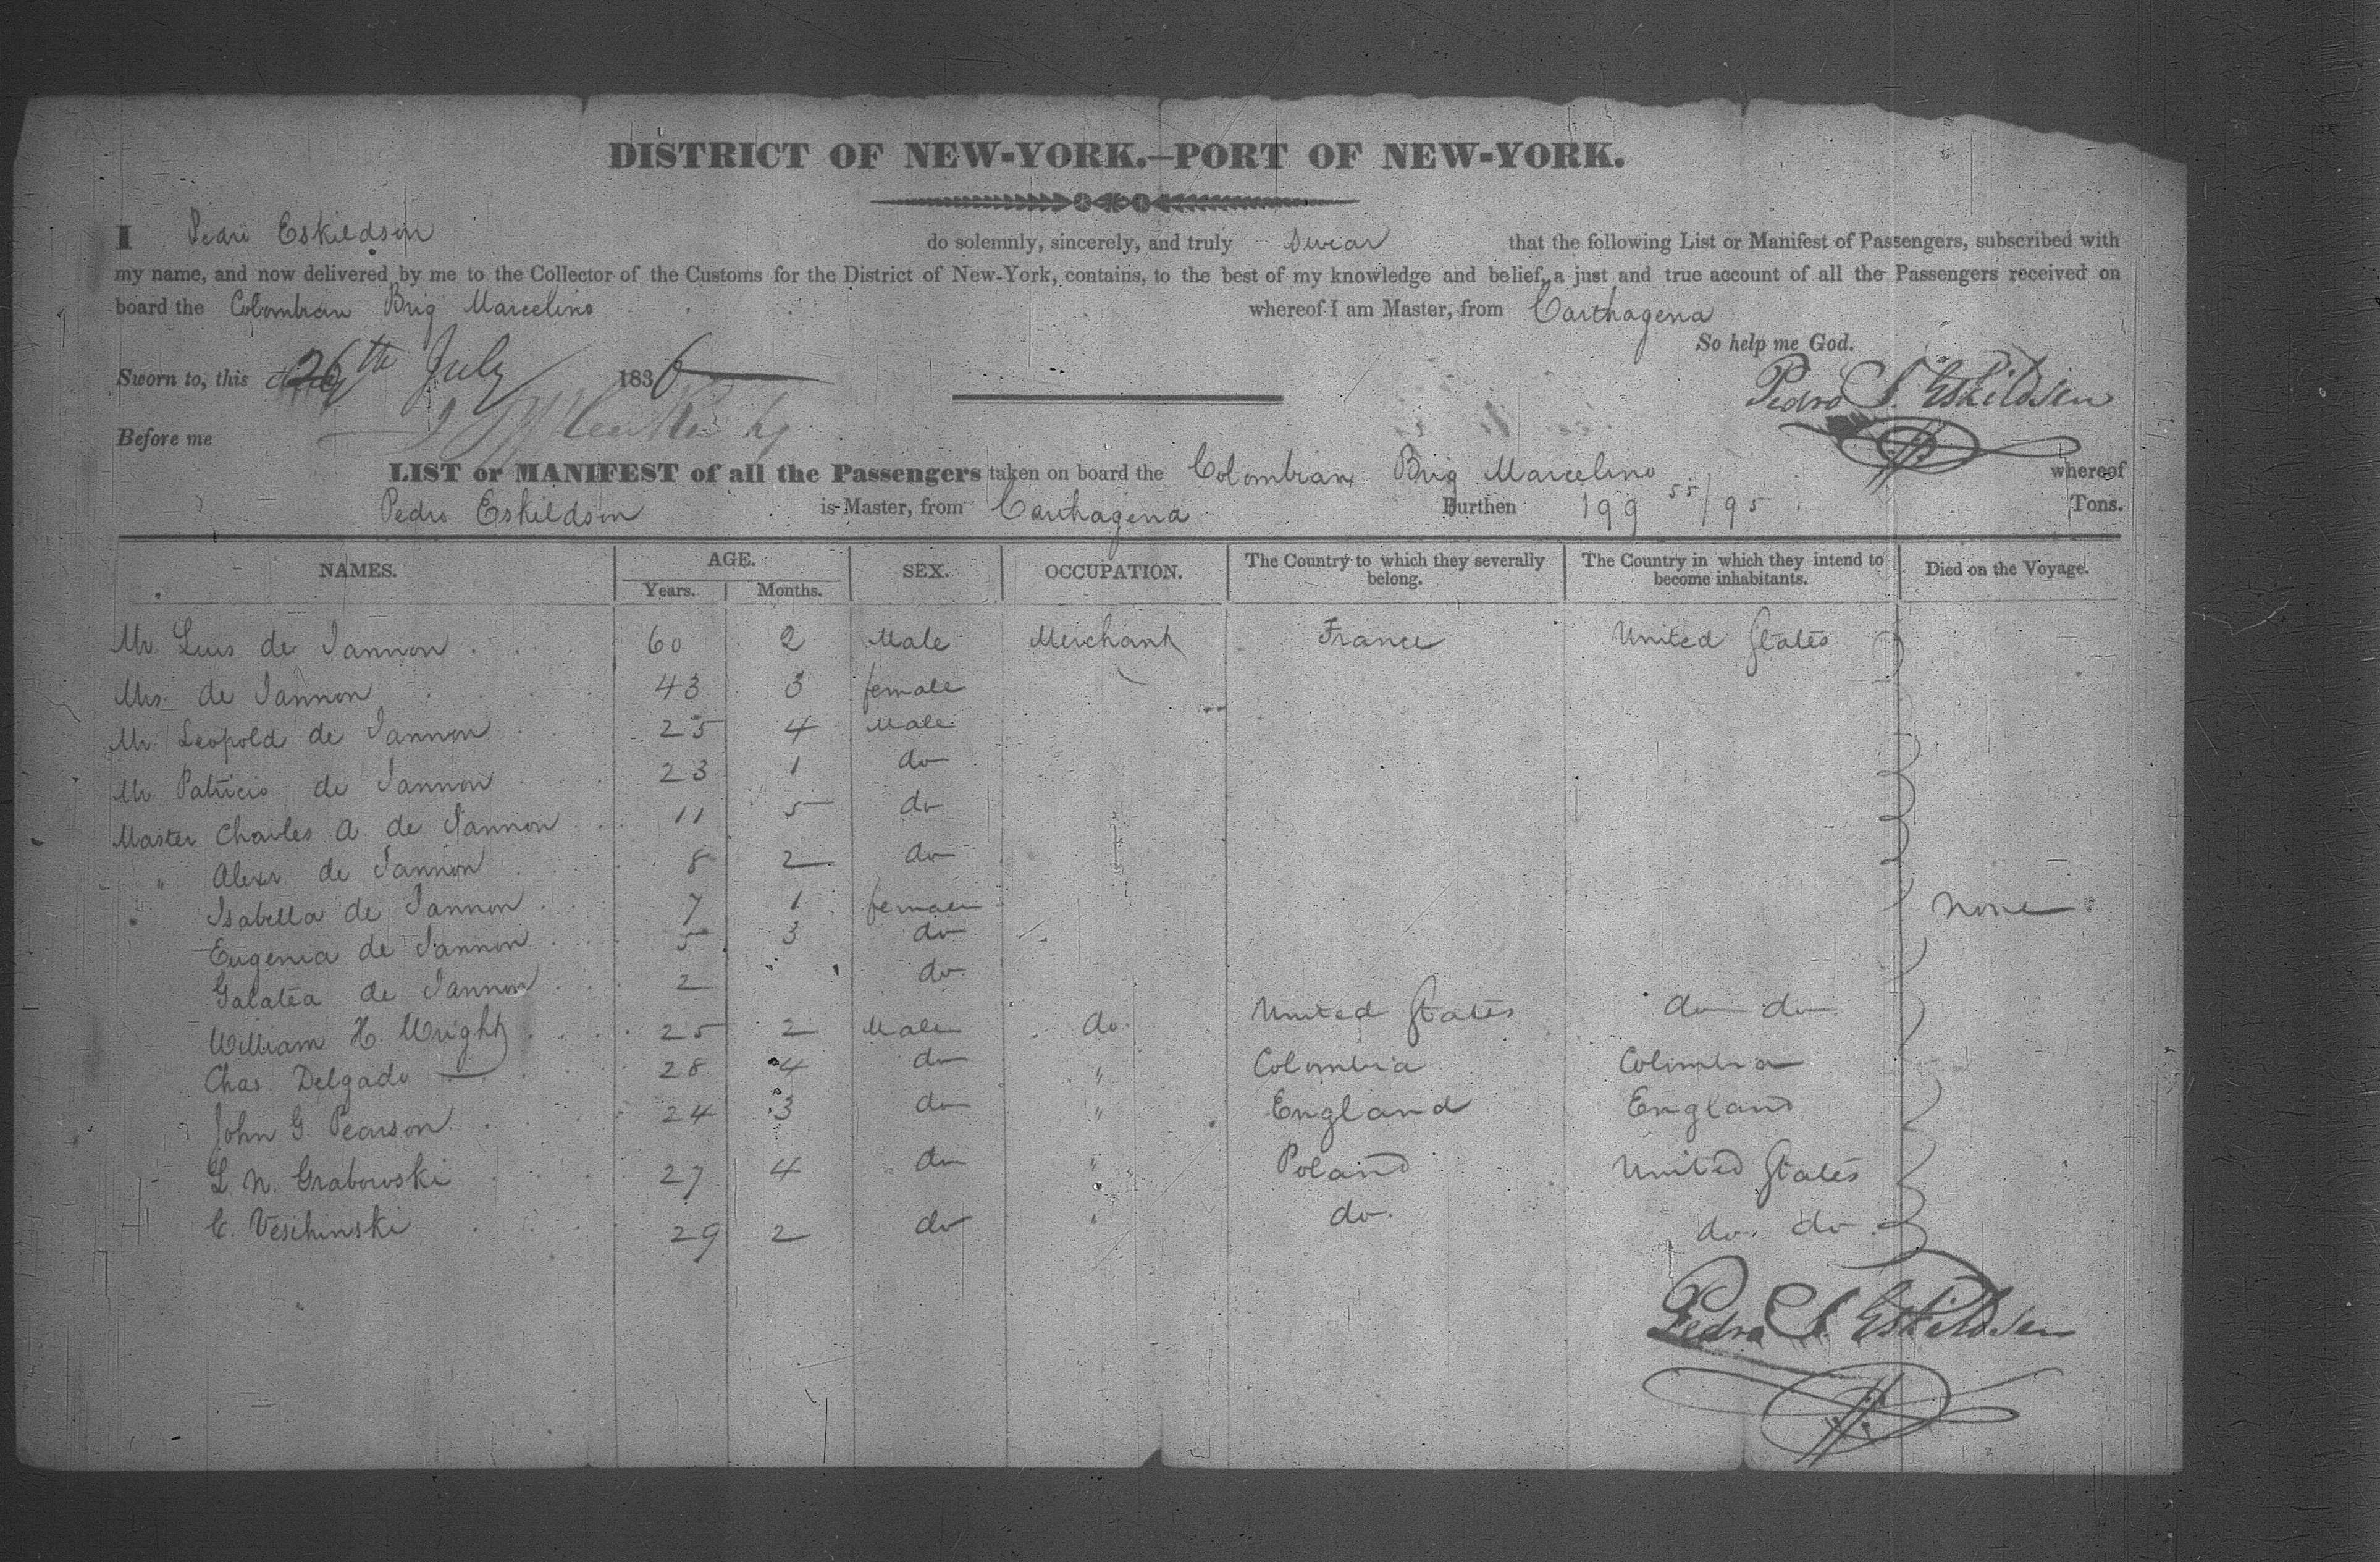 DISTRICT OF NEW-YORK.—PORT OF NEW-YORK.
I Pedro Eskildson do solemnly, sincerely, and truly Swear that the following List or Manifest of Passengers, subscribed with
my name, and now delivered by me to the Collector of the Customs for the District of New-York, contains, to the best of my knowledge and belief, a just and true account of all the Passengers received on
board the Colombian Brig Marcelino whereof I am Master, from Carthagena
So help me God.
Sworn to, this 26th July 1836
Pedro S. Eskildsen
Before me
LIST or MANIFEST of all the Passengers taken on board the Colombian Brig Marcelino whereof
Pedro Eskildson is Master, from Carthagena Burthen 199 55/95 Tons.
NAMES. AGE. Years. Months. SEX. OCCUPATION. The Country to which they severally belong. The Country in which they intend to become inhabitants. Died on the Voyage.
Mr. Luis de Jannon 60 2 Male Merchant France United States
Mrs. de Jannon 43 3 female
Mr. Leopold de Jannon 25 4 Male
Mr Patricio de Jannon 23 1 do
Master Charles A. de Jannon 11 5 do
" Alexr. de Jannon 8 2 do
Isabella de Jannon 7 1 female None
Eugenia de Jannon 5 3 do
Galatea de Jannon 2 do
William H. Wright 25 2 Male do. United States do do
Chas. Delgado 28 4 do " Colombia Colombia
John G. Pearson 24 3 do " England England
L. N. Grabowski 27 4 do " Poland United States
C. Veschinski 29 2 do " do. do. do
Pedro S. Eskildsen